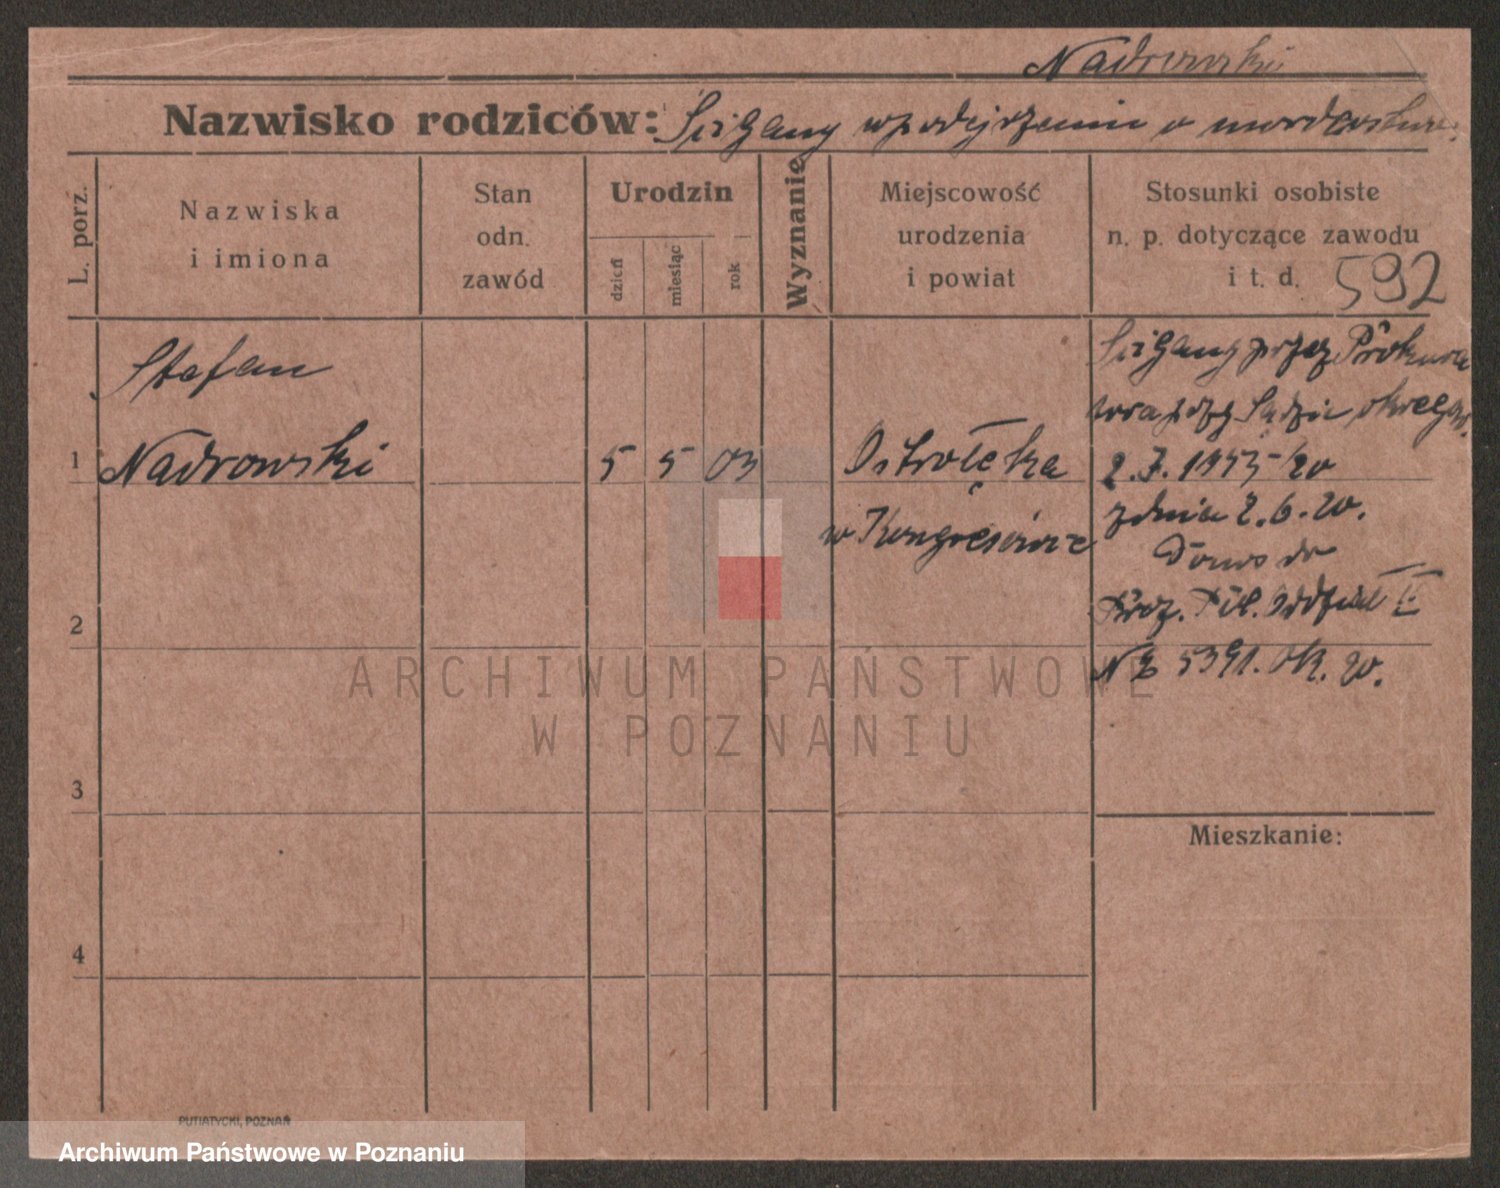 Nadrowski
Nazwisko rodziców: Ścigany w podejrzeniu o morderstwo.
L. porz.
Nazwiska
i imiona
Stan
odn.
zawód
Urodzin
dzień
miesiąc
rok
Wyznanie
Miejscowość
urodzenia
i powiat
Stosunki osobiste
n. p. dotyczące zawodu
i t. d. 592
Stefan
1 Nadrowski 5 5 03 Ostrołęka
w Kongresówce
Ścigany przez Prokura
tora przy Sądzie okręgow.
2. J. 1953/20
z dnia 2.6.20.
Oddział II
5391. 20.
2
3
4
Mieszkanie:
PUTIATYCKI, POZNAŃ
ARCHIWUM PAŃSTWOWE
W POZNANIU
Archiwum Państwowe w Poznaniu